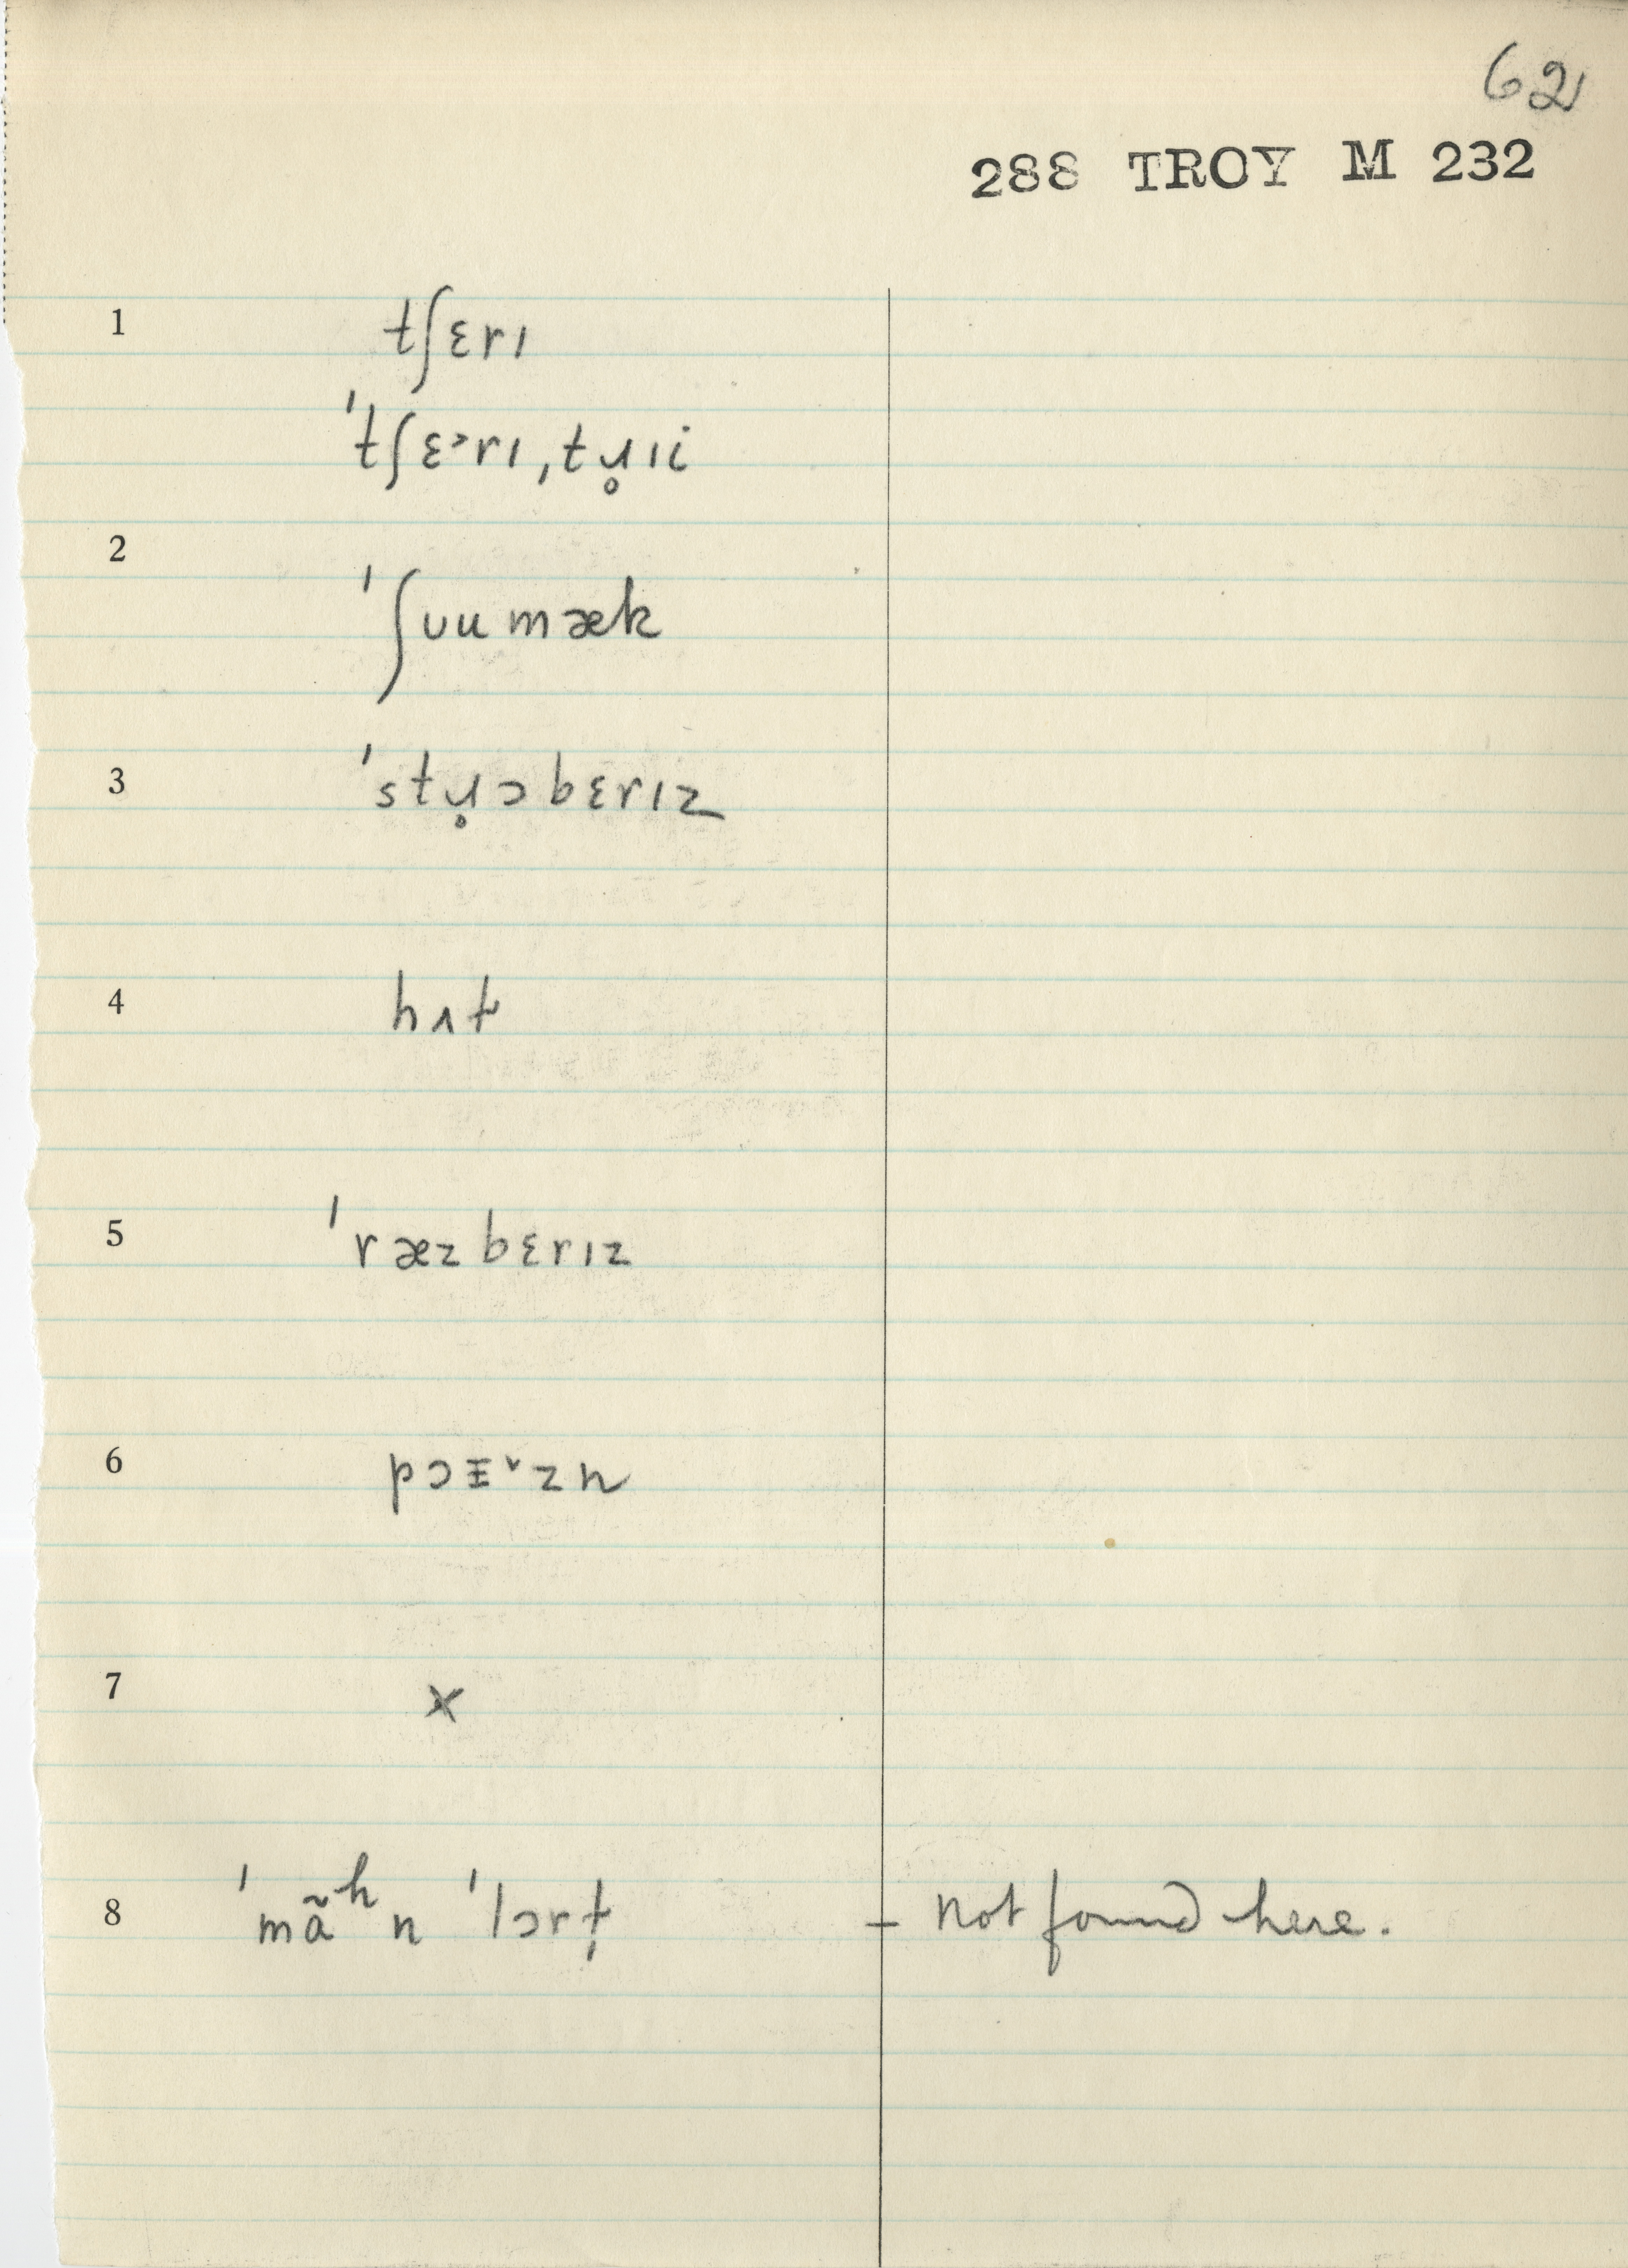 62
288 TROY M 232
1 tʃɛrɪ
ˈtʃɛ˃rɪ, tɹ̥ɪi
2 ˈʃʊumæk
3 ˈstɹ̥ɔbɛrɪz
4 hʌt
5 ˈræzbɛrɪz
6 pɔɪ̵˅zn
7 x
8 ˈmãʰn ˈlɔrt̩ – not found here.